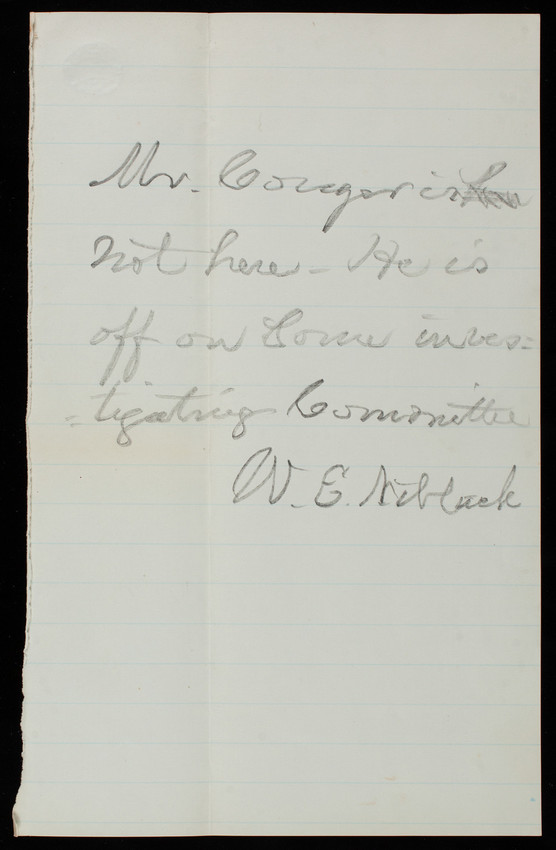 Mr. Conger is
not here - He is
off on Some inves=
=tigating Committee
W. E. Niblack